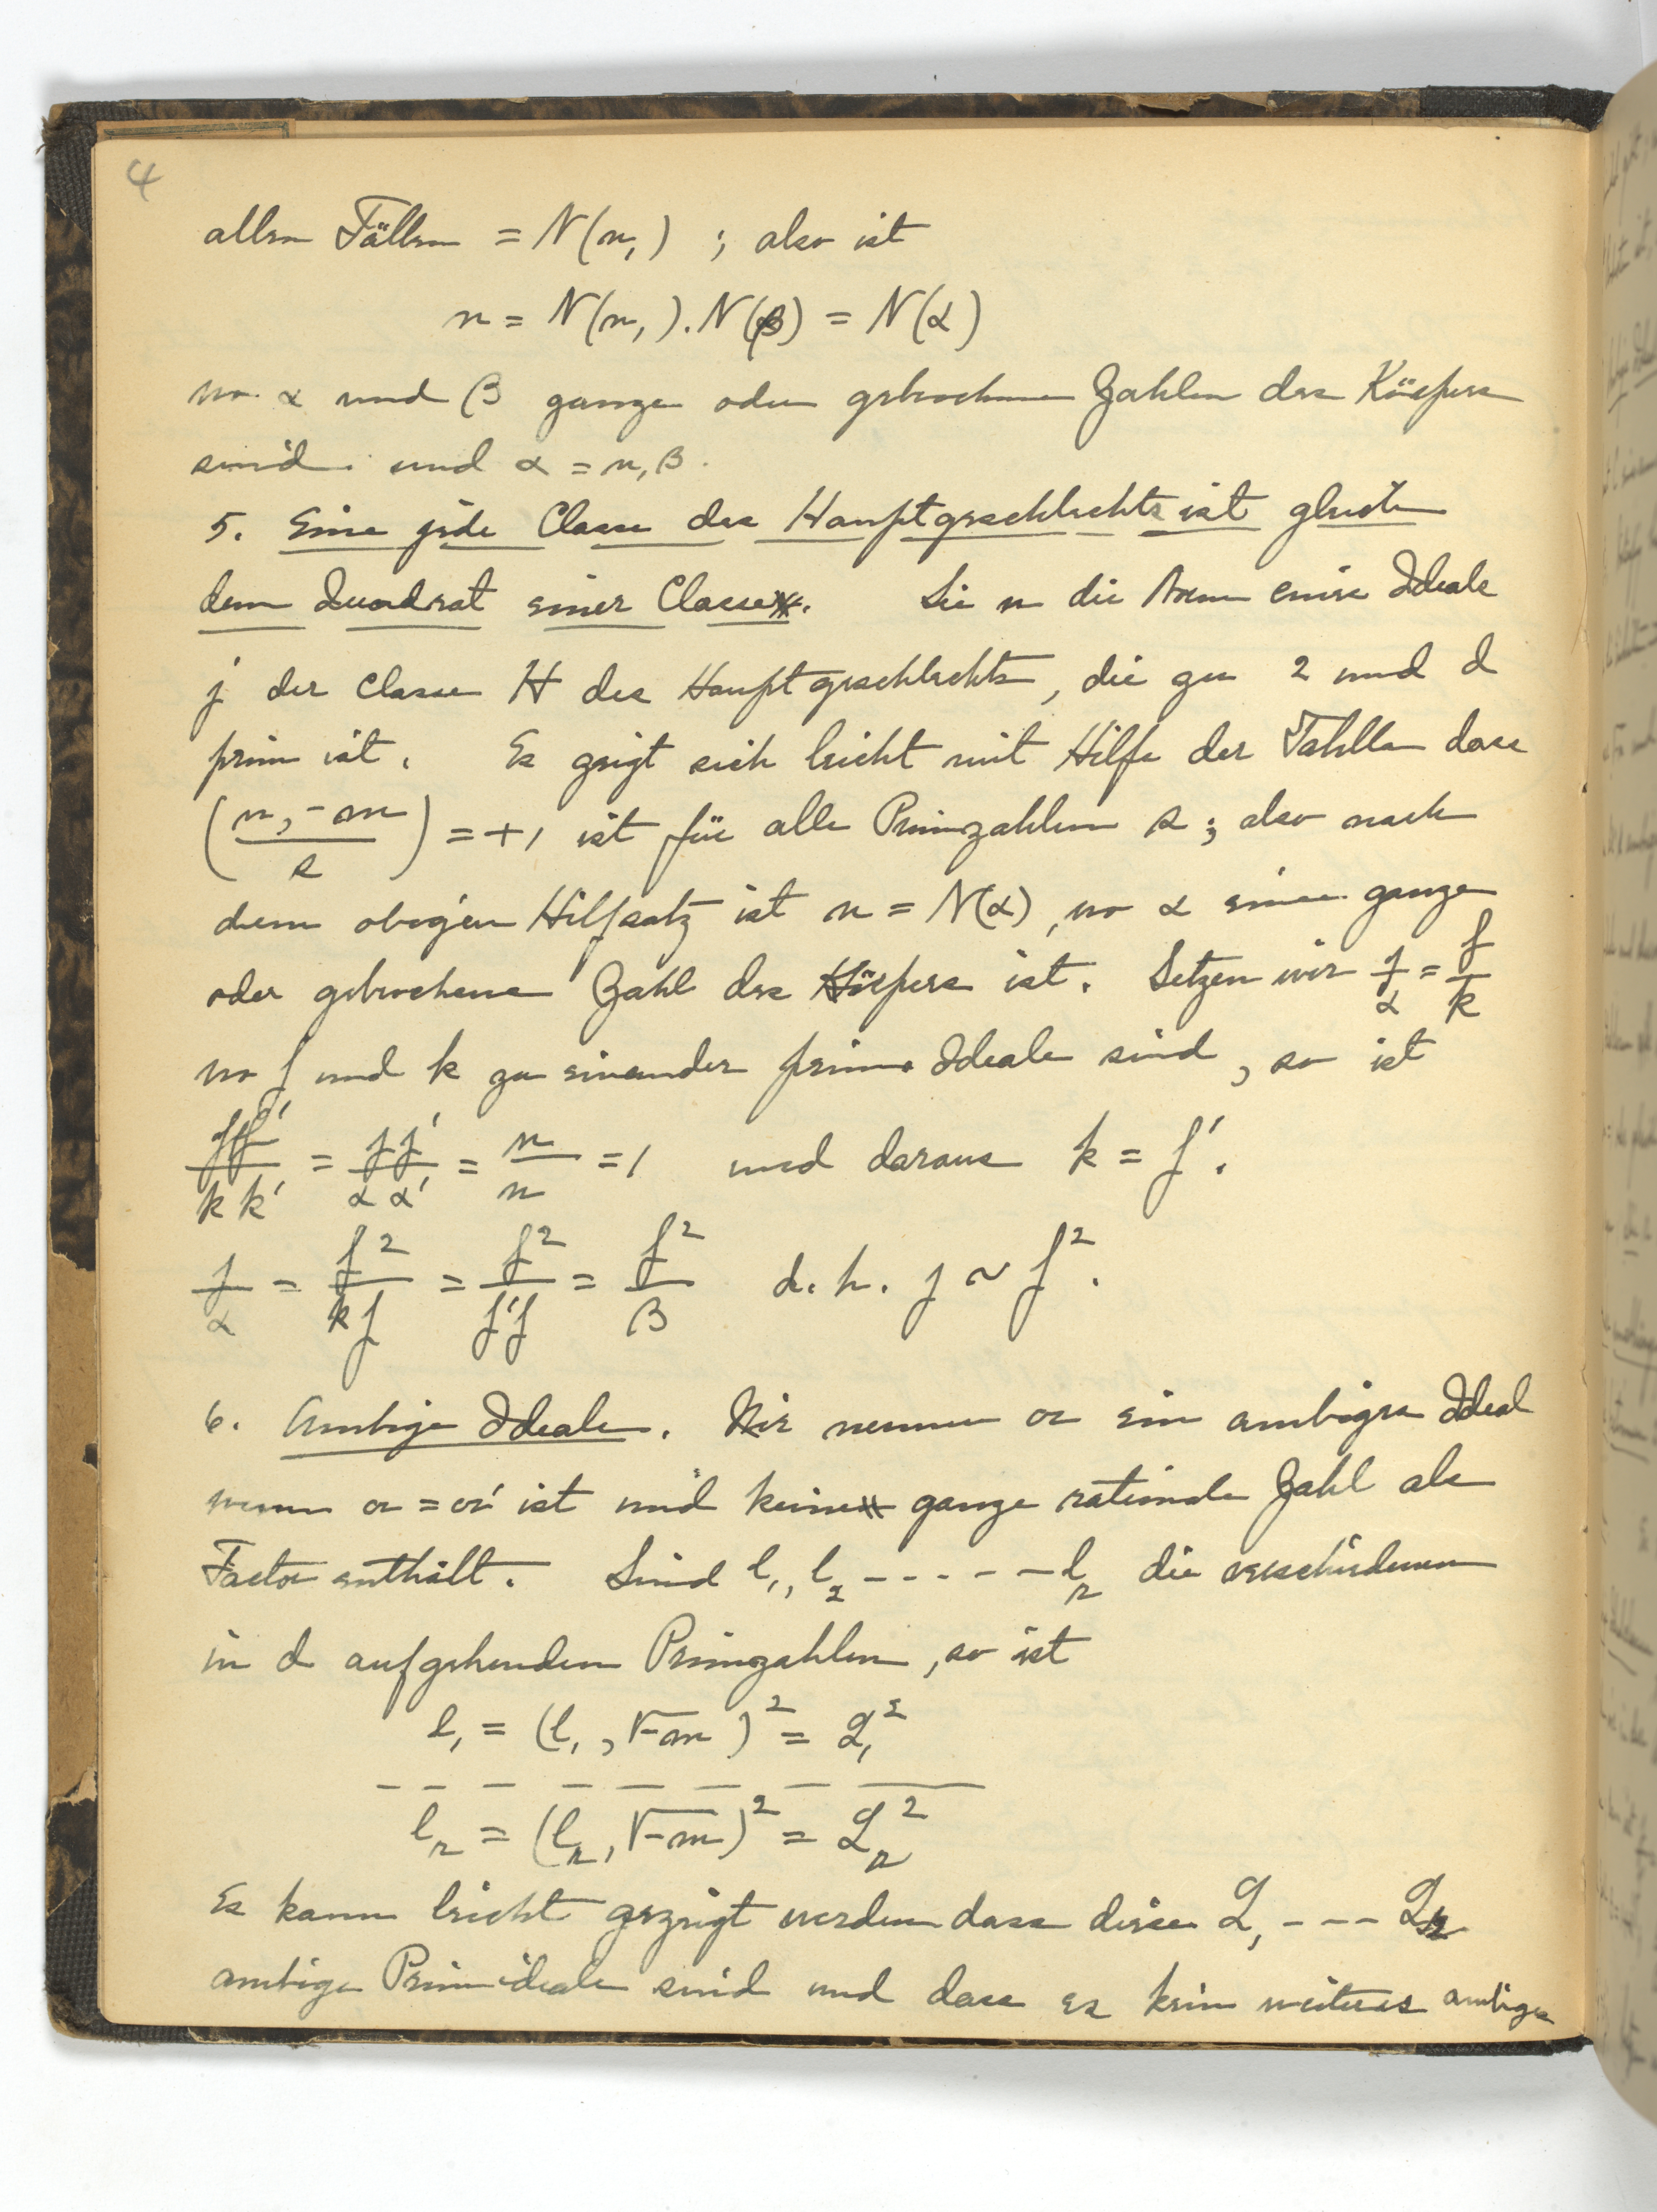 4
allen Fällen = N(n₁) ; also ist
n = N(n₁).N(β) = N(α)
wo α und β ganze oder gebrochene Zahlen des Körpers
sind. und α = n₁β.
5. Eine jede Classe des Hauptgeschlechts ist gleich
dem Quadrat einer Classe. Sei n die Norm eines Ideals
j der Classe H des Hauptgeschlechts, die zu 2 und d
prim ist. Es zeigt sich leicht mit Hilfe der Tabelle dass
(n, -m / s) = +1 ist für alle Primzahlen s ; also nach
dem obigen Hilfsatz ist n = N(α), wo α eine ganze
oder gebrochene Zahl des Körpers ist. Setzen wir j/α = f/k
wo f und k zu einander prime Ideale sind, so ist
ff′/kk′ = jj′/αα′ = n/n = 1 und daraus k = f′.
j/α = f²/kf = f²/f′f = f²/β d.h. j ~ f².
6. Ambige Ideale. Wir nennen a ein ambiges Ideal
wenn a = a′ ist und keine ganze rationale Zahl als
Factor enthält. Sind l₁, l₂ - - - - - lᵣ die verschiedenen
in d aufgehenden Primzahlen, so ist
l₁ = (l₁, √-m)² = L₁²
lᵣ = (lᵣ, √-m)² = Lᵣ²
Es kann leicht gezeigt werden dass diese L₁ - - - Lᵣ
ambige Primideale sind und dass es kein weiteres ambiges